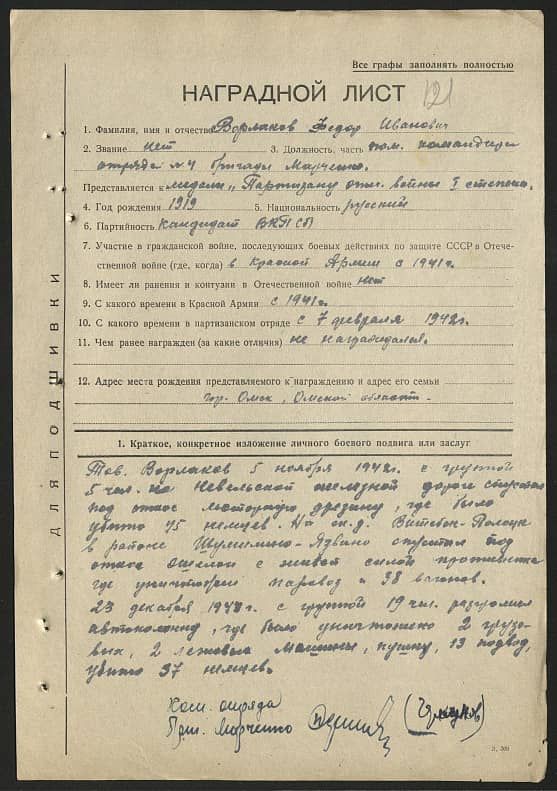 Все графы заполнять полностью
НАГРАДНОЙ ЛИСТ
121
1. Фамилия, имя и отчество Ворлаков Федор Иванович
2. Звание нет 3. Должность, часть пом. командира
отряда №4 бригады Марченко.
Представляется к медали „Партизану отеч. войны I степени.
4. Год рождения 1919 5. Национальность русский
6. Партийность кандидат ВКП(б)
7. Участие в гражданской войне, последующих боевых действиях по защите СССР в Отече-
ственной войне (где, когда) в Красной Армии с 1941г.
8. Имеет ли ранения и контузии в Отечественной войне нет
9. С какого времени в Красной Армии с 1941г.
10. С какого времени в партизанском отряде с 7 февраля 1942г.
11. Чем ранее награжден (за какие отличия) не награждался.
12. Адрес места рождения представляемого к награждению и адрес его семьи
гор. Омск, Омской области.
1. Краткое, конкретное изложение личного боевого подвига или заслуг
Тов. Ворлаков 5 ноября 1942г. с группой
5 чел. на Невельской железной дороге спустил
под откос моторную дрезину, где было
убито 15 немцев. На ж.д. Витебск-Полоцк
в районе Шумилино-Язвино спустил под
откос эшелон с живой силой противника
где уничтожен паровоз и 38 вагонов.
23 декабря 1942г. с группой 19 чел. разгромил
автоколонну, где было уничтожено 2 грузо-
вых, 2 легковых машины, пушку, 13 подвод,
убито 37 немцев.
Ком. отряда
Бриг. Марченко
ДЛЯ ПОДШИВКИ